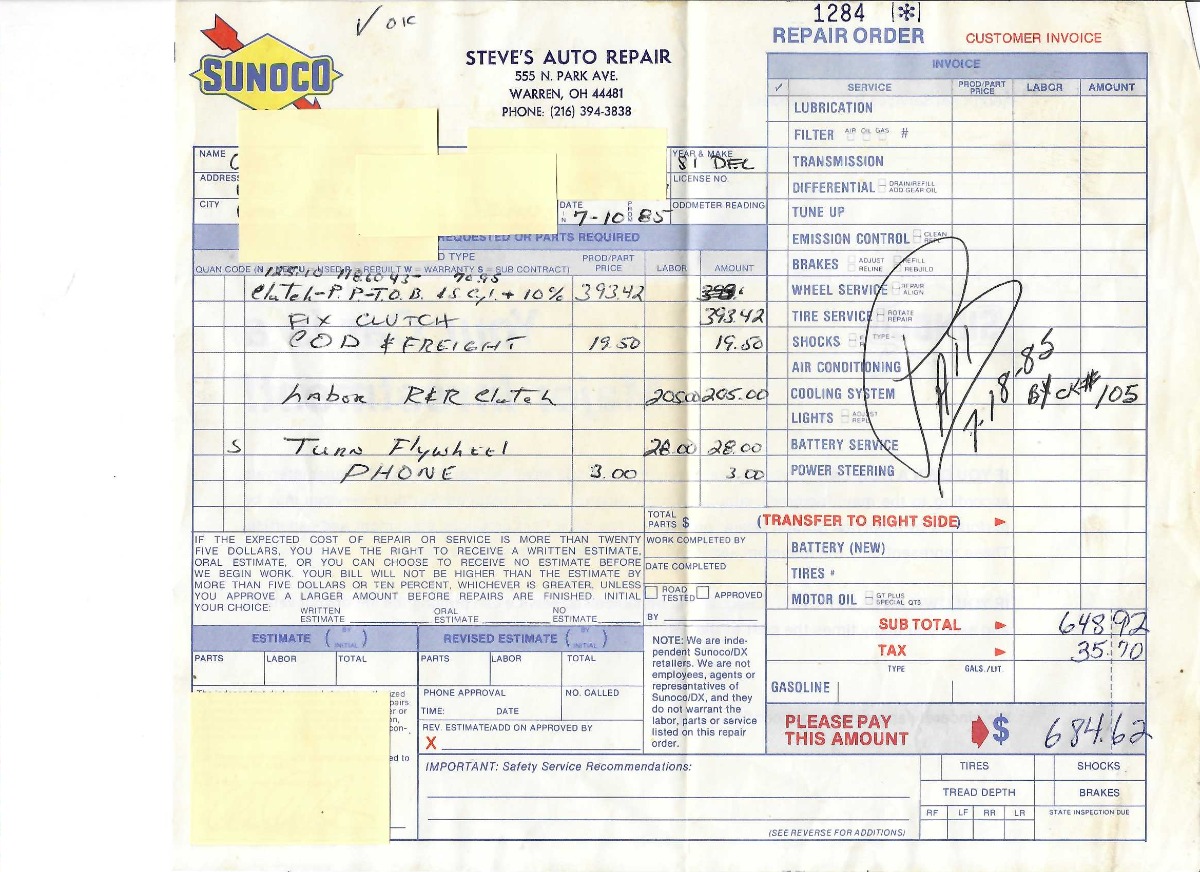 ✓ OK
1284 [*]
SUNOCO
STEVE'S AUTO REPAIR
555 N. PARK AVE.
WARREN, OH 44481
PHONE: (216) 394-3838
REPAIR ORDER CUSTOMER INVOICE
NAME
YEAR & MAKE
81 DEL
ADDRESS
LICENSE NO.
CITY
DATE IN 7-10 85
ODOMETER READING
REQUESTED OR PARTS REQUIRED
D TYPE
QUAN CODE (N USED R = REBUILT W = WARRANTY S = SUB CONTRACT) PROD/PART PRICE LABOR AMOUNT
Clutch-P.P-T.O.B. & S Cyl. + 10% 393.42
FIX CLUTCH 393.42
COD & FREIGHT 19.50 19.50
Labor R&R Clutch 205.00 205.00
S Turn Flywheel 28.00 28.00
PHONE 3.00 3.00
TOTAL PARTS $ (TRANSFER TO RIGHT SIDE)
IF THE EXPECTED COST OF REPAIR OR SERVICE IS MORE THAN TWENTY
FIVE DOLLARS, YOU HAVE THE RIGHT TO RECEIVE A WRITTEN ESTIMATE,
ORAL ESTIMATE, OR YOU CAN CHOOSE TO RECEIVE NO ESTIMATE BEFORE
WE BEGIN WORK. YOUR BILL WILL NOT BE HIGHER THAN THE ESTIMATE BY
MORE THAN FIVE DOLLARS OR TEN PERCENT, WHICHEVER IS GREATER, UNLESS
YOU APPROVE A LARGER AMOUNT BEFORE REPAIRS ARE FINISHED. INITIAL
YOUR CHOICE:
WRITTEN ESTIMATE ORAL ESTIMATE NO ESTIMATE
WORK COMPLETED BY
DATE COMPLETED
ROAD TESTED APPROVED
BY
ESTIMATE (BY INITIAL)
PARTS LABOR TOTAL
REVISED ESTIMATE (BY INITIAL)
PARTS LABOR TOTAL
PHONE APPROVAL NO. CALLED
TIME: DATE
REV. ESTIMATE/ADD ON APPROVED BY
X
NOTE: We are inde-
pendent Sunoco/DX
retailers. We are not
employees, agents or
representatives of
Sunoco/DX, and they
do not warrant the
labor, parts or service
listed on this repair
order.
IMPORTANT: Safety Service Recommendations:
(SEE REVERSE FOR ADDITIONS)
INVOICE
✓ SERVICE PROD/PART PRICE LABOR AMOUNT
LUBRICATION
FILTER AIR OIL GAS #
TRANSMISSION
DIFFERENTIAL DRAIN/REFILL ADD GEAR OIL
TUNE UP
EMISSION CONTROL CLEAN
BRAKES ADJUST RELINE REFILL REBUILD
WHEEL SERVICE REPAIR ALIGN
TIRE SERVICE ROTATE REPAIR
SHOCKS TYPE-
AIR CONDITIONING
COOLING SYSTEM
LIGHTS ADJUST REPL
BATTERY SERVICE
POWER STEERING
7-18-85
BY CK# 105
BATTERY (NEW)
TIRES #
MOTOR OIL GT PLUS SPECIAL QTS
SUB TOTAL 648 92
TAX 35.70
TYPE GALS./LIT.
GASOLINE
PLEASE PAY
THIS AMOUNT $ 684.62
TIRES SHOCKS
TREAD DEPTH BRAKES
RF LF RR LR STATE INSPECTION DUE